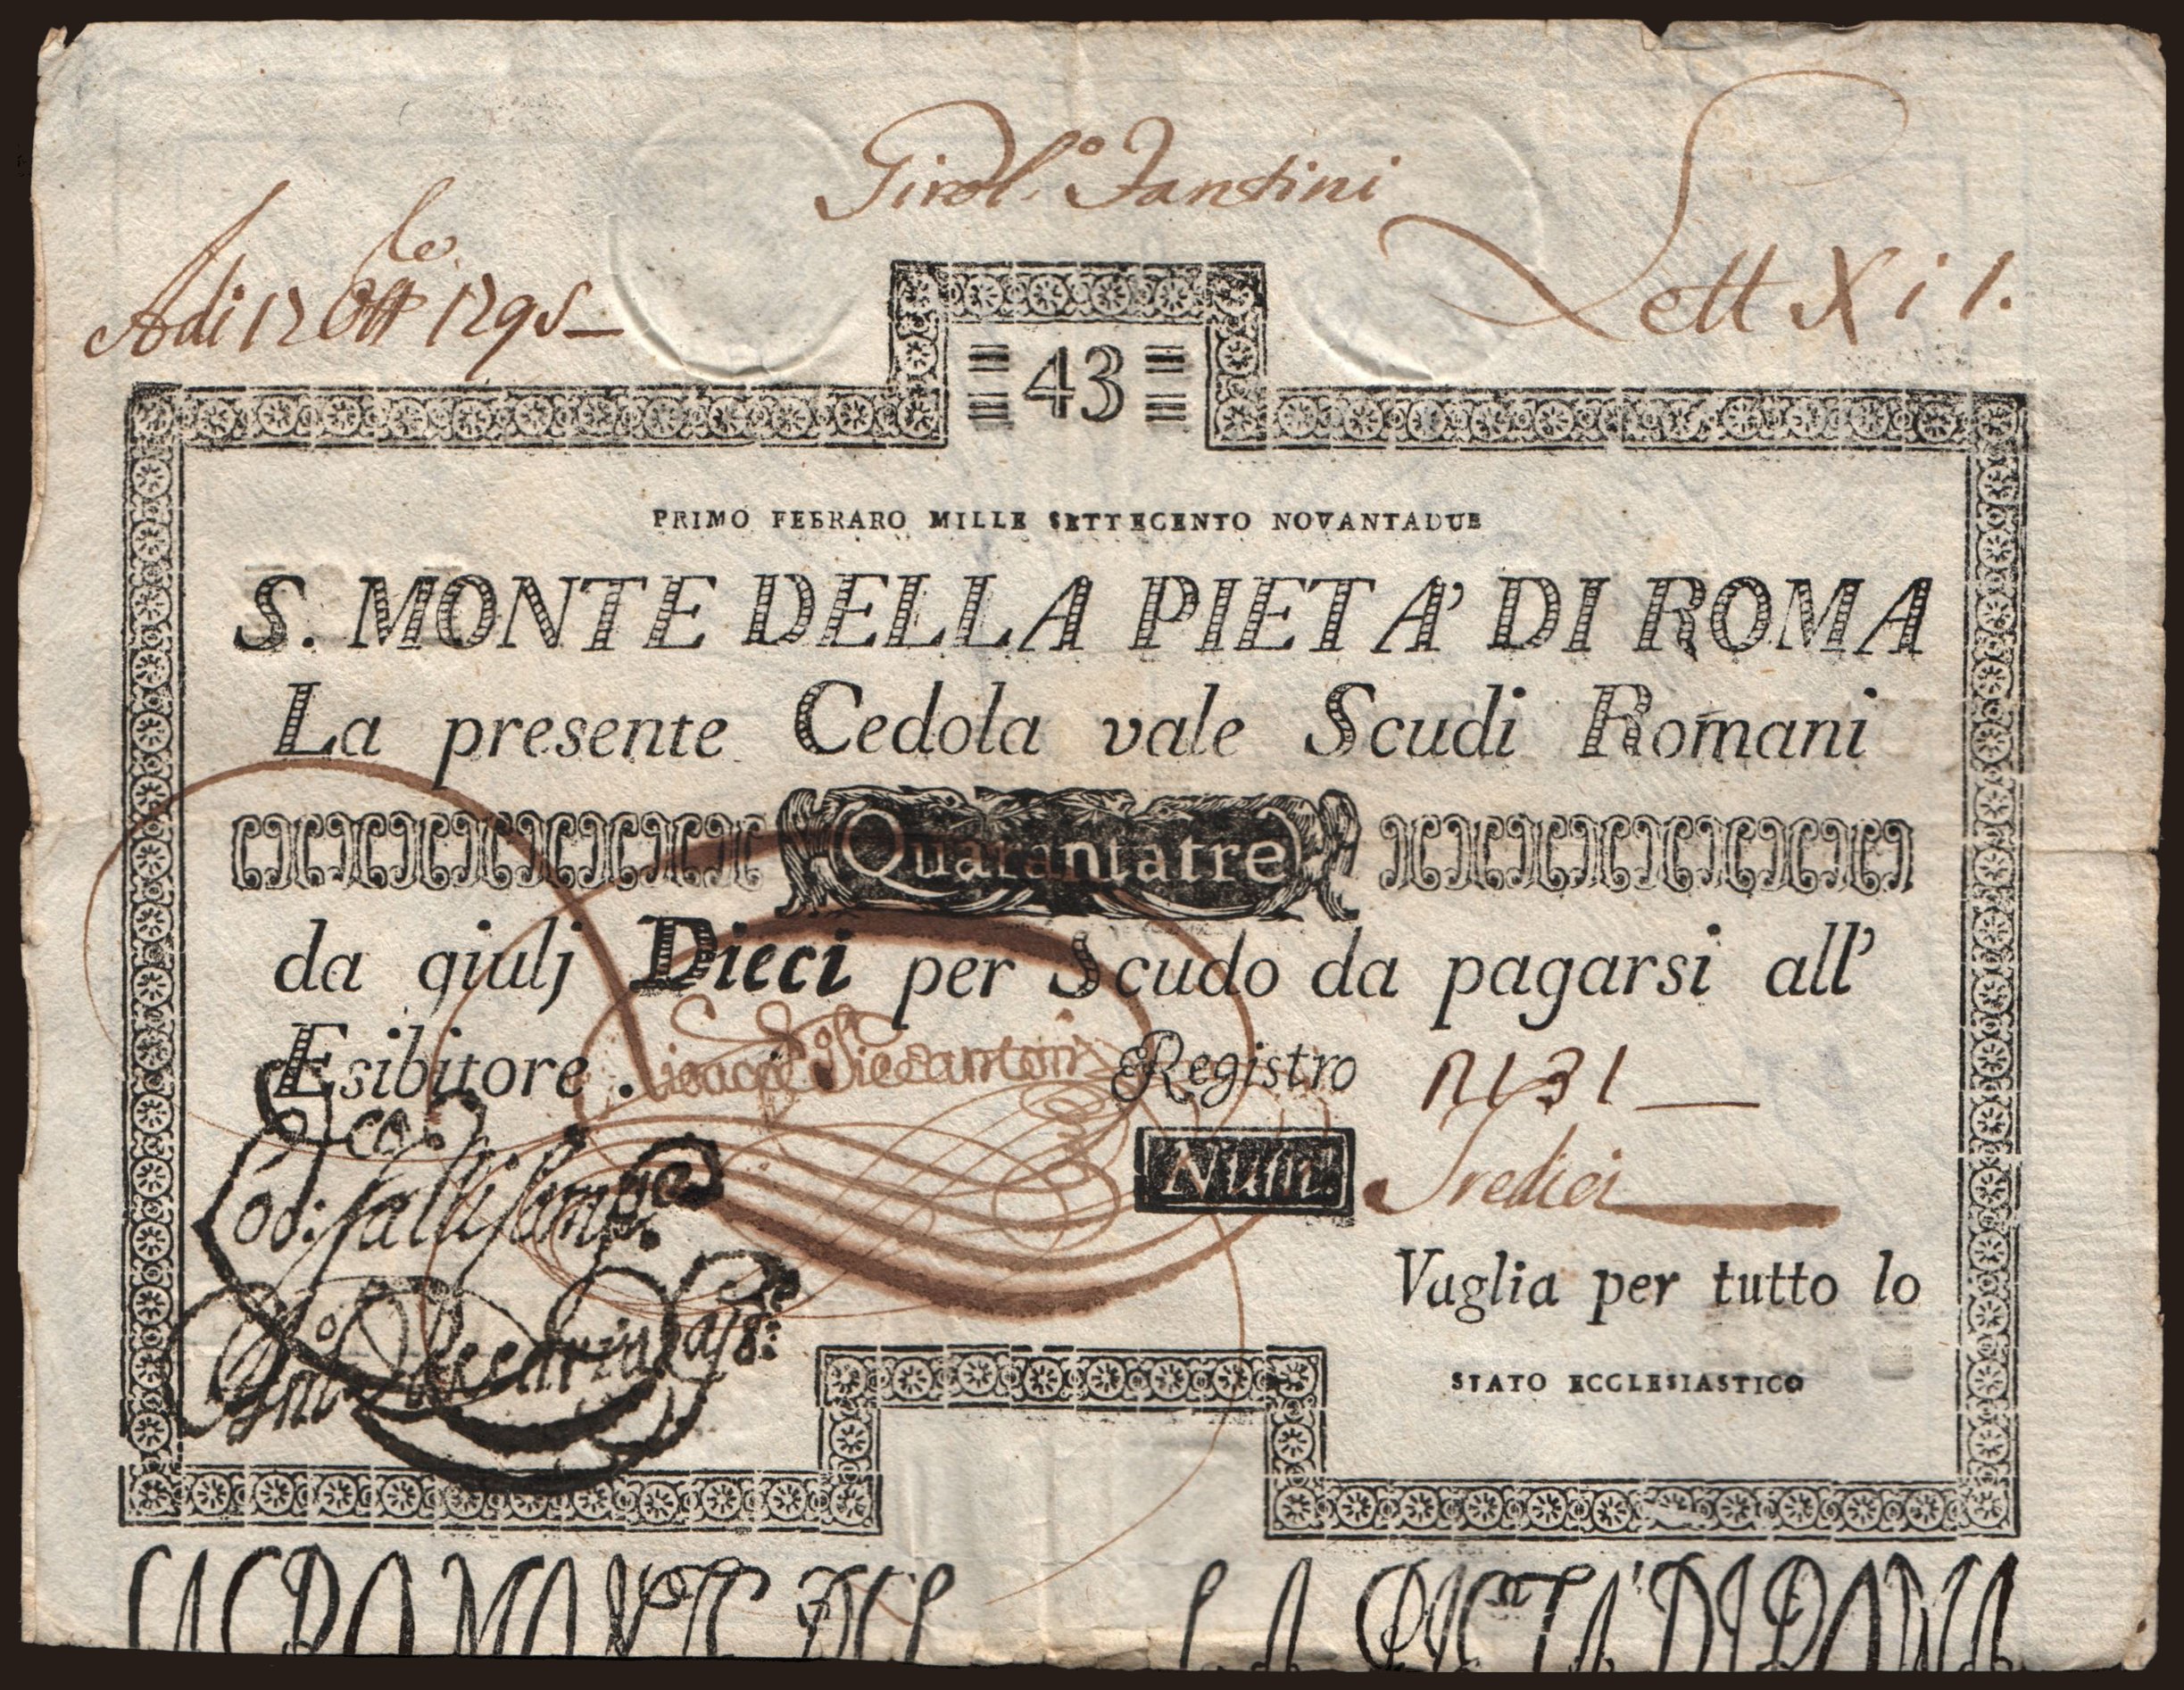 Girol.º Fantini
Adi 17 Ott.le 1795
Lett X i 1.
43
PRIMO FEBRARO MILLE SETTECENTO NOVANTADUE
S. MONTE DELLA PIETA' DI ROMA
La presente Cedola vale Scudi Romani
Quarantatre
da giulj Dieci per Scudo da pagarsi all'
Esibitore. Registro
Num. Tredici
Vaglia per tutto lo
STATO ECCLESIASTICO
SACRO MONTE DEL LA PIETA' DI ROMA